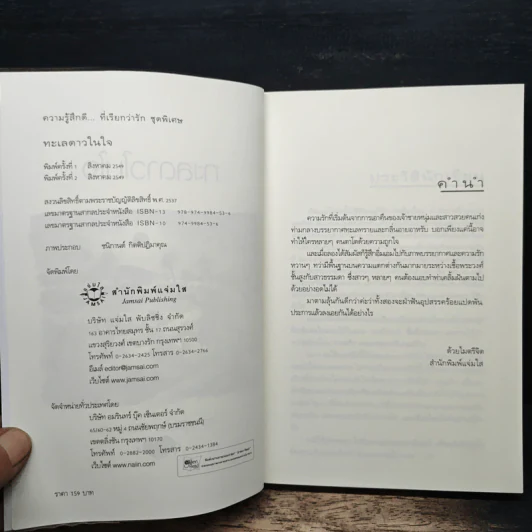 ความรู้สึกดี... ที่เรียกว่ารัก ชุดพิเศษ
ทะเลดาวในใจ
พิมพ์ครั้งที่ 1 สิงหาคม 2549
พิมพ์ครั้งที่ 2 สิงหาคม 2549
สงวนลิขสิทธิ์ตามพระราชบัญญัติลิขสิทธิ์ พ.ศ. 2537
เลขมาตรฐานสากลประจำหนังสือ ISBN-13 978-974-9984-53-6
เลขมาตรฐานสากลประจำหนังสือ ISBN-10 974-9984-53-4
ภาพประกอบ ชนิกานต์ กิตติปฏิมาคุณ
จัดพิมพ์โดย
สำนักพิมพ์แจ่มใส
Jamsai Publishing
บริษัท แจ่มใส พับลิชชิ่ง จำกัด
163 อาคารไทยสมุทร ชั้น 17 ถนนสุรวงศ์
แขวงสุริยวงศ์ เขตบางรัก กรุงเทพฯ 10500
โทรศัพท์ 0-2634-2425 โทรสาร 0-2634-2764
อีเมล์ editor@jamsai.com
เว็บไซต์ www.jamsai.com
จัดจำหน่ายทั่วประเทศโดย
บริษัท อมรินทร์ บุ๊ค เซ็นเตอร์ จำกัด
65/60-62 หมู่ 4 ถนนชัยพฤกษ์ (บรมราชชนนี)
เขตตลิ่งชัน กรุงเทพฯ 10170
โทรศัพท์ 0-2882-2000 โทรสาร 0-2434-1384
เว็บไซต์ www.naiin.com
ราคา 159 บาท
คำนำ
ความรักที่เริ่มต้นจากการเอาคืนของเจ้าชายหนุ่มและสาวสวยคนเก่ง
ท่ามกลางบรรยากาศทะเลทรายและกลิ่นอายอาหรับ บอกเพียงแค่นี้อาจ
ทำให้ใครหลายๆ คนตกใจด้วยความถูกใจ
และเมื่อลองได้สัมผัสก็รู้สึกอิ่มเอมไปกับภาพบรรยากาศและความรัก
หวานๆ ทว่ามีพื้นฐานบนความแตกต่างกันมากมายระหว่างเชื้อพระวงศ์
ชั้นสูงกับสาวธรรมดา ซึ่งสาวๆ หลายๆ คนต้องแอบทำท่าเคลิ้มฝันตามไป
ด้วยอย่างอดไม่ได้
มาตามลุ้นกันดีกว่าค่ะว่าทั้งสองจะฝ่าฟันอุปสรรคร้อยแปดพัน
ประการแล้วลงเอยกันได้อย่างไร
ด้วยไมตรีจิต
สำนักพิมพ์แจ่มใส